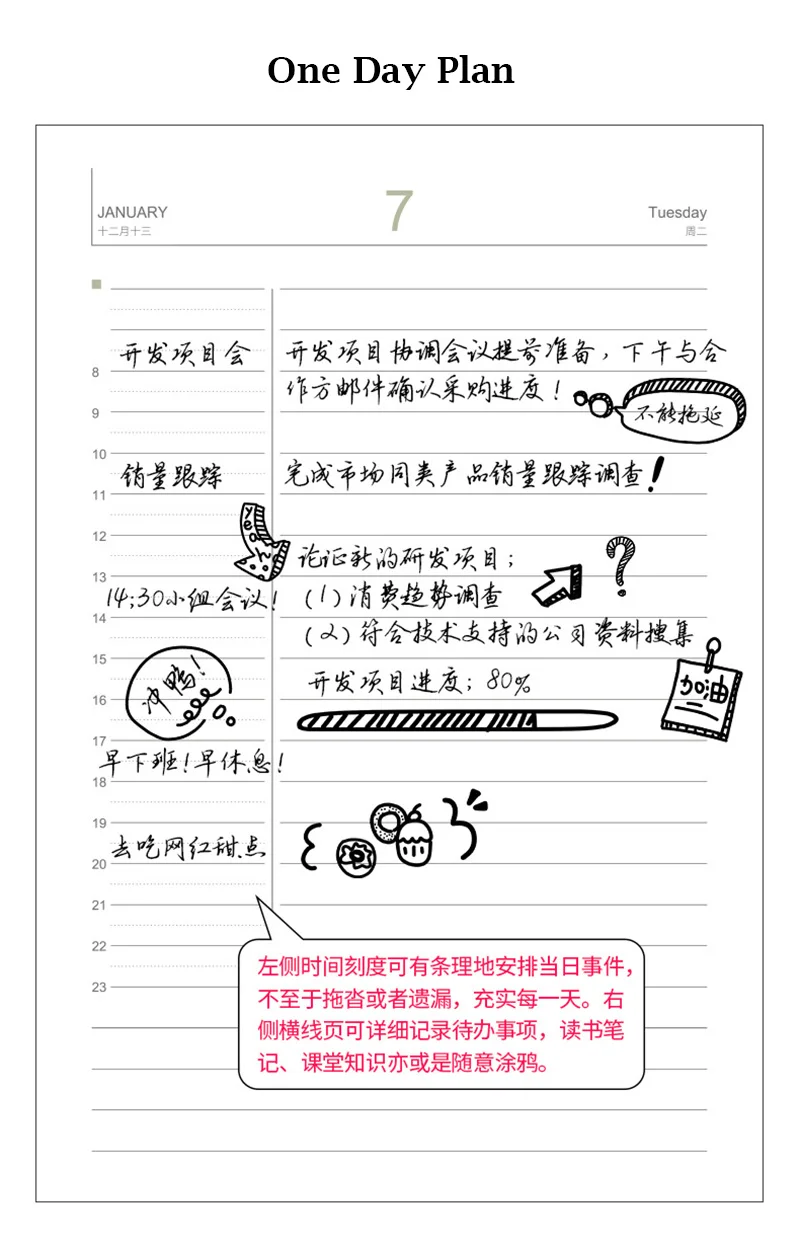 One Day Plan
JANUARY
十二月十三
7
Tuesday
周二
8
开发项目会
开发项目协调会议提前准备，下午与合
作方邮件确认采购进度！
不能拖延
9
10
销量跟踪
完成市场同类产品销量跟踪调查！
11
12
yeah
论证新的研发项目；
?
13
14:30小组会议！
(1)消费趋势调查
14
(2)符合技术支持的公司资料搜集
15
冲鸭！
开发项目进度；80%
加油
16
17
早下班！早休息！
18
19
去吃网红甜点
20
21
22
23
左侧时间刻度可有条理地安排当日事件，
不至于拖沓或者遗漏，充实每一天。右
侧横线页可详细记录待办事项，读书笔
记、课堂知识亦或是随意涂鸦。